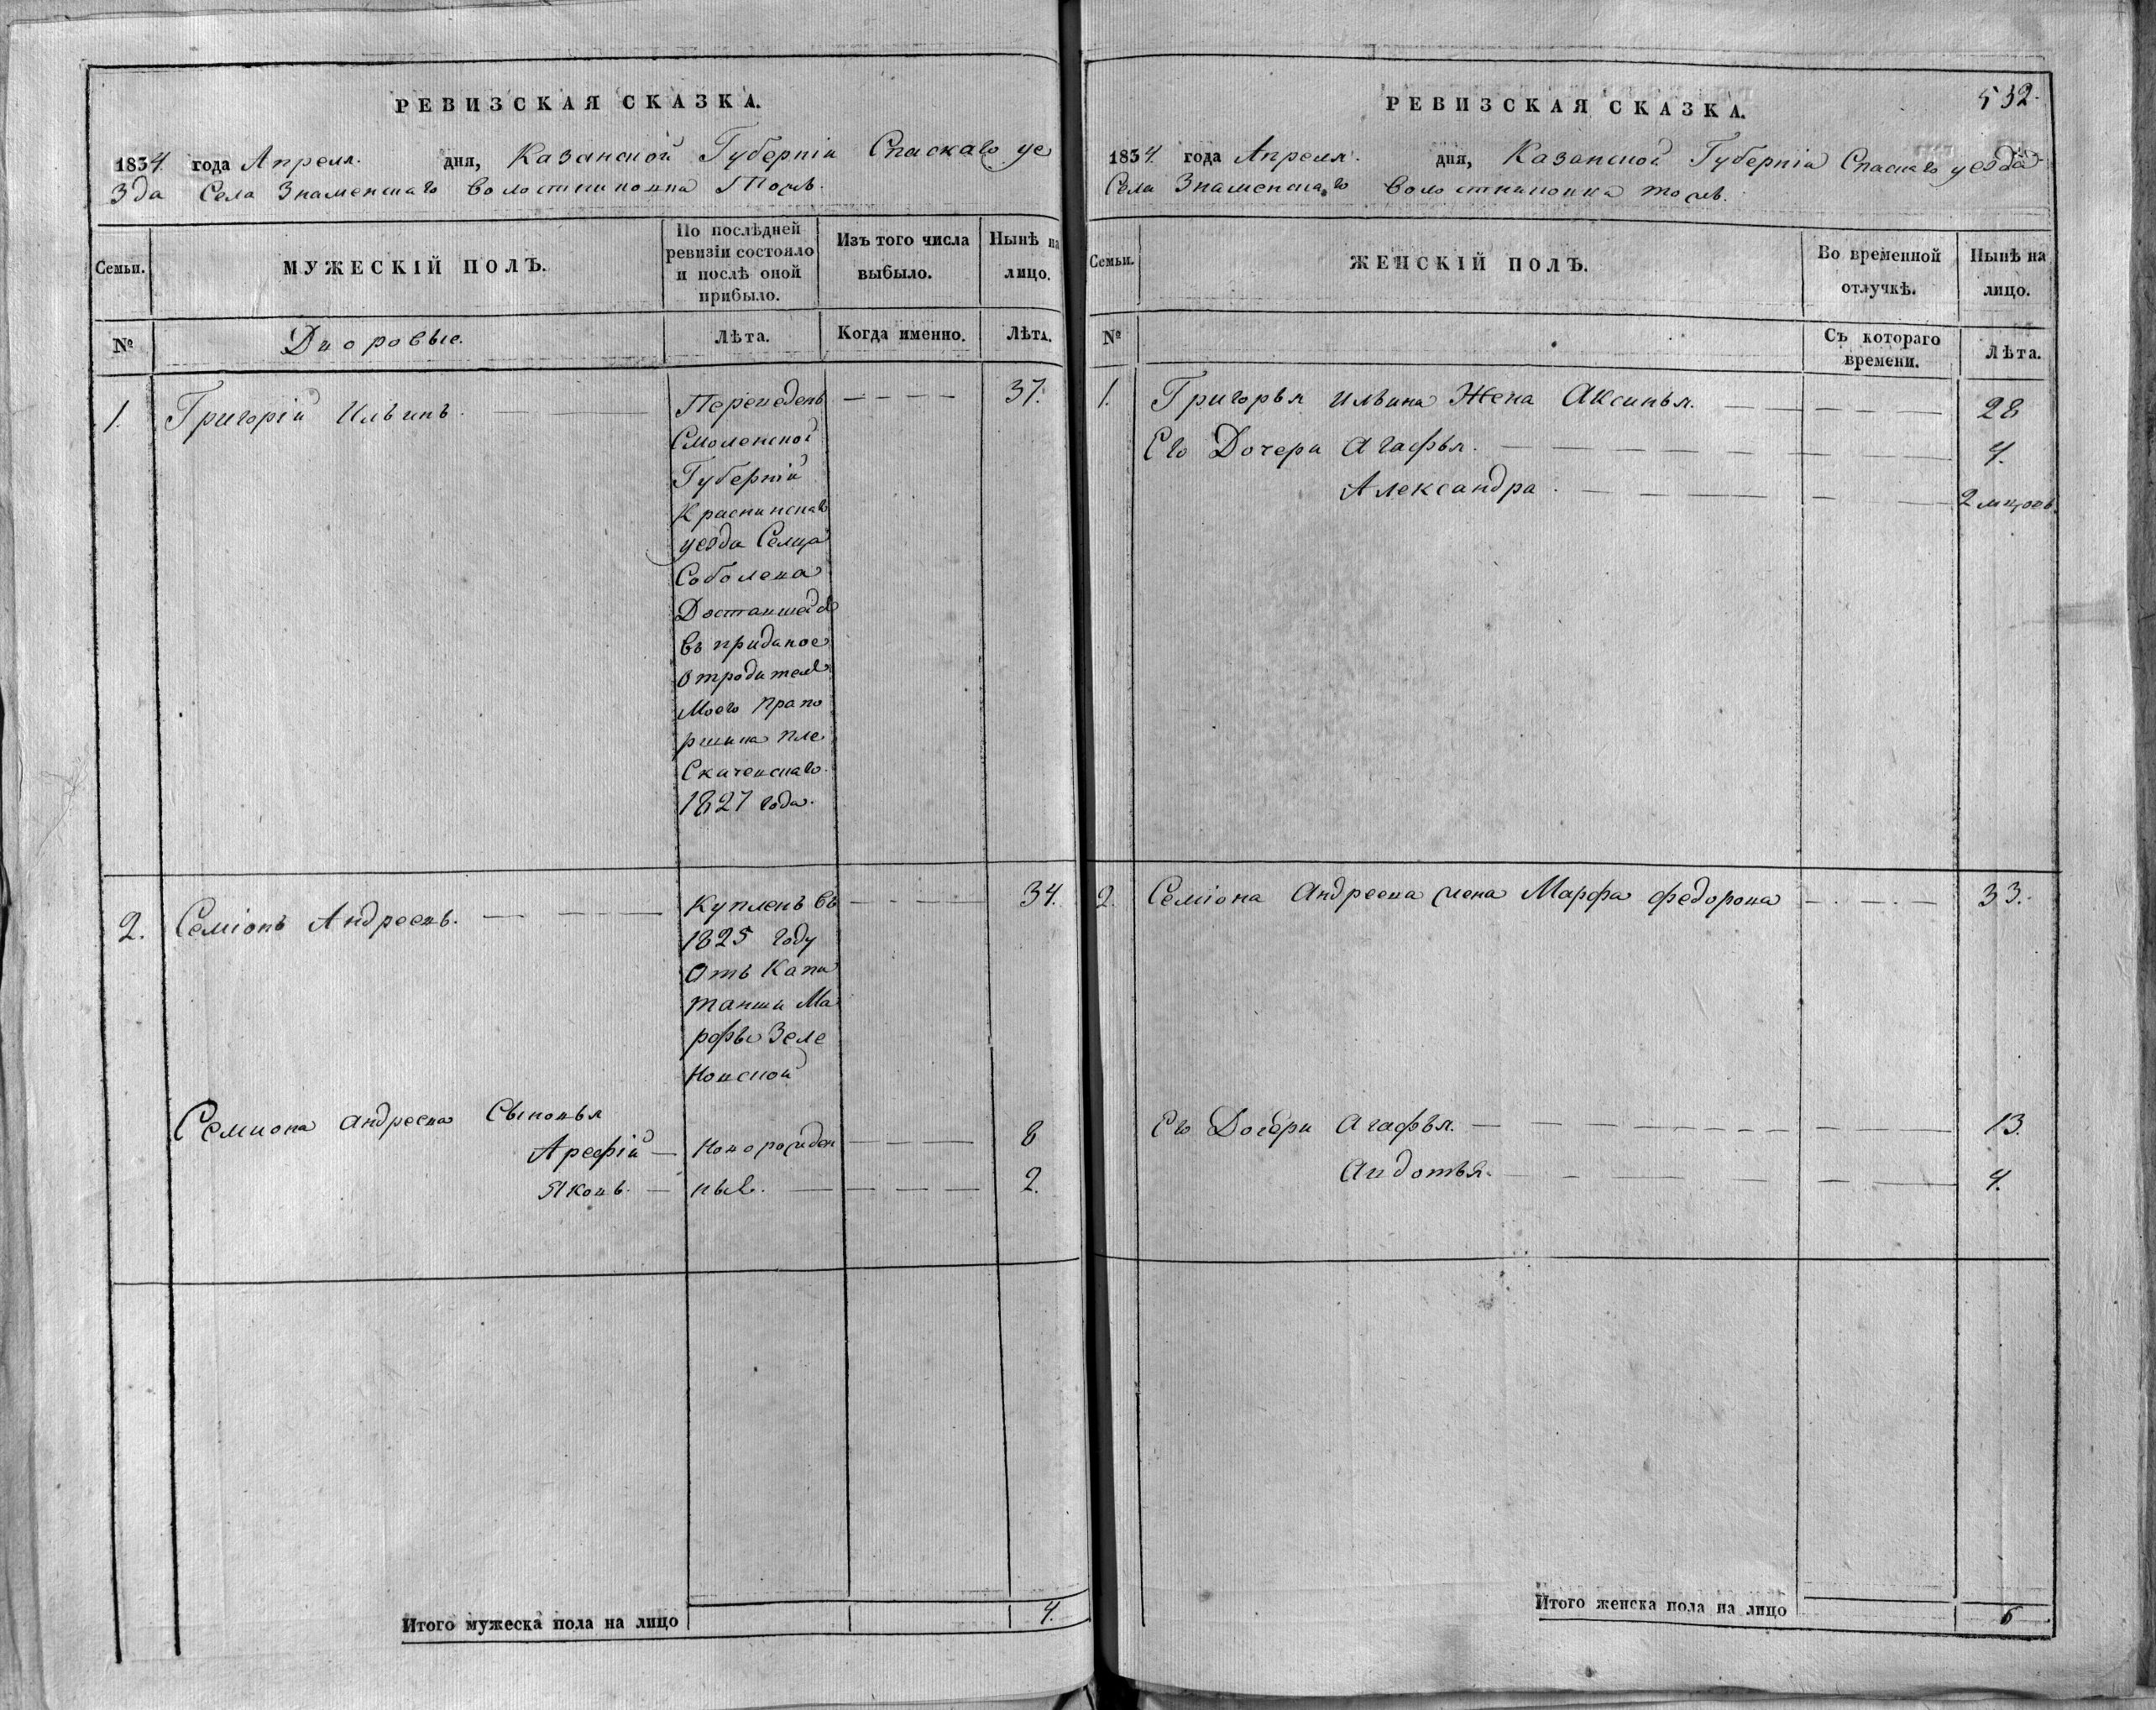 РЕВИЗСКАЯ СКАЗКА.
1834. года Апреля. дня, Казанской Губерніи Спаскаго уе
зда Села Знаменскаго Волостниковка Тожъ.
Семьи.
МУЖЕСКІЙ ПОЛЪ.
По послѣдней
ревизіи состояло
и послѣ оной
прибыло.
Изъ того числа
выбыло.
Нынѣ на
лицо.
№
Дворовые.
Лѣта.
Когда именно.
Лѣта.
1. Григорій Ильинъ. Переведенъ 37.
Смоленской
Губерній
Краснинскаго
уезда Селца
Соболева
Доставшейся
въ приданое
отродителя
Моего Прапо
рщика Пле
Скачевскаго.
1827 года.
2. Семіонъ Андреевъ. Купленъ въ 34.
1825 году
Отъ Капи
танши Ма
рфы Зеле
Новской
Семиона Андреева Сыновья
Арефій Новорожден 8
Яковъ. ные. 2.
Итого мужеска пола на лицо 4.
532.
РЕВИЗСКАЯ СКАЗКА.
1834. года Апреля. дня, Казанской Губерніи Спаскаго уезда
Села Знаменскаго Волостниковка тожъ.
Семьи.
ЖЕНСКІЙ ПОЛЪ.
Во временной
отлучкѣ.
Нынѣ на
лицо.
№
Съ котораго
времени.
Лѣта.
1. Григорья Ильина Жена Аксинья. 28
Его Дочери Агафья. 4.
Александра. 2 мцовъ.
2. Семіона Андреева жена Марфа федорова 33.
Его Дочери Агафья. 13.
Авдотья. 4.
Итого женска пола на лицо 6